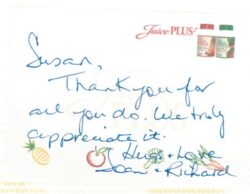 Juice PLUS+
Susan,
Thank you for
all you do. We truly
appreciate it.
Hugs + Love
Joan + Richard